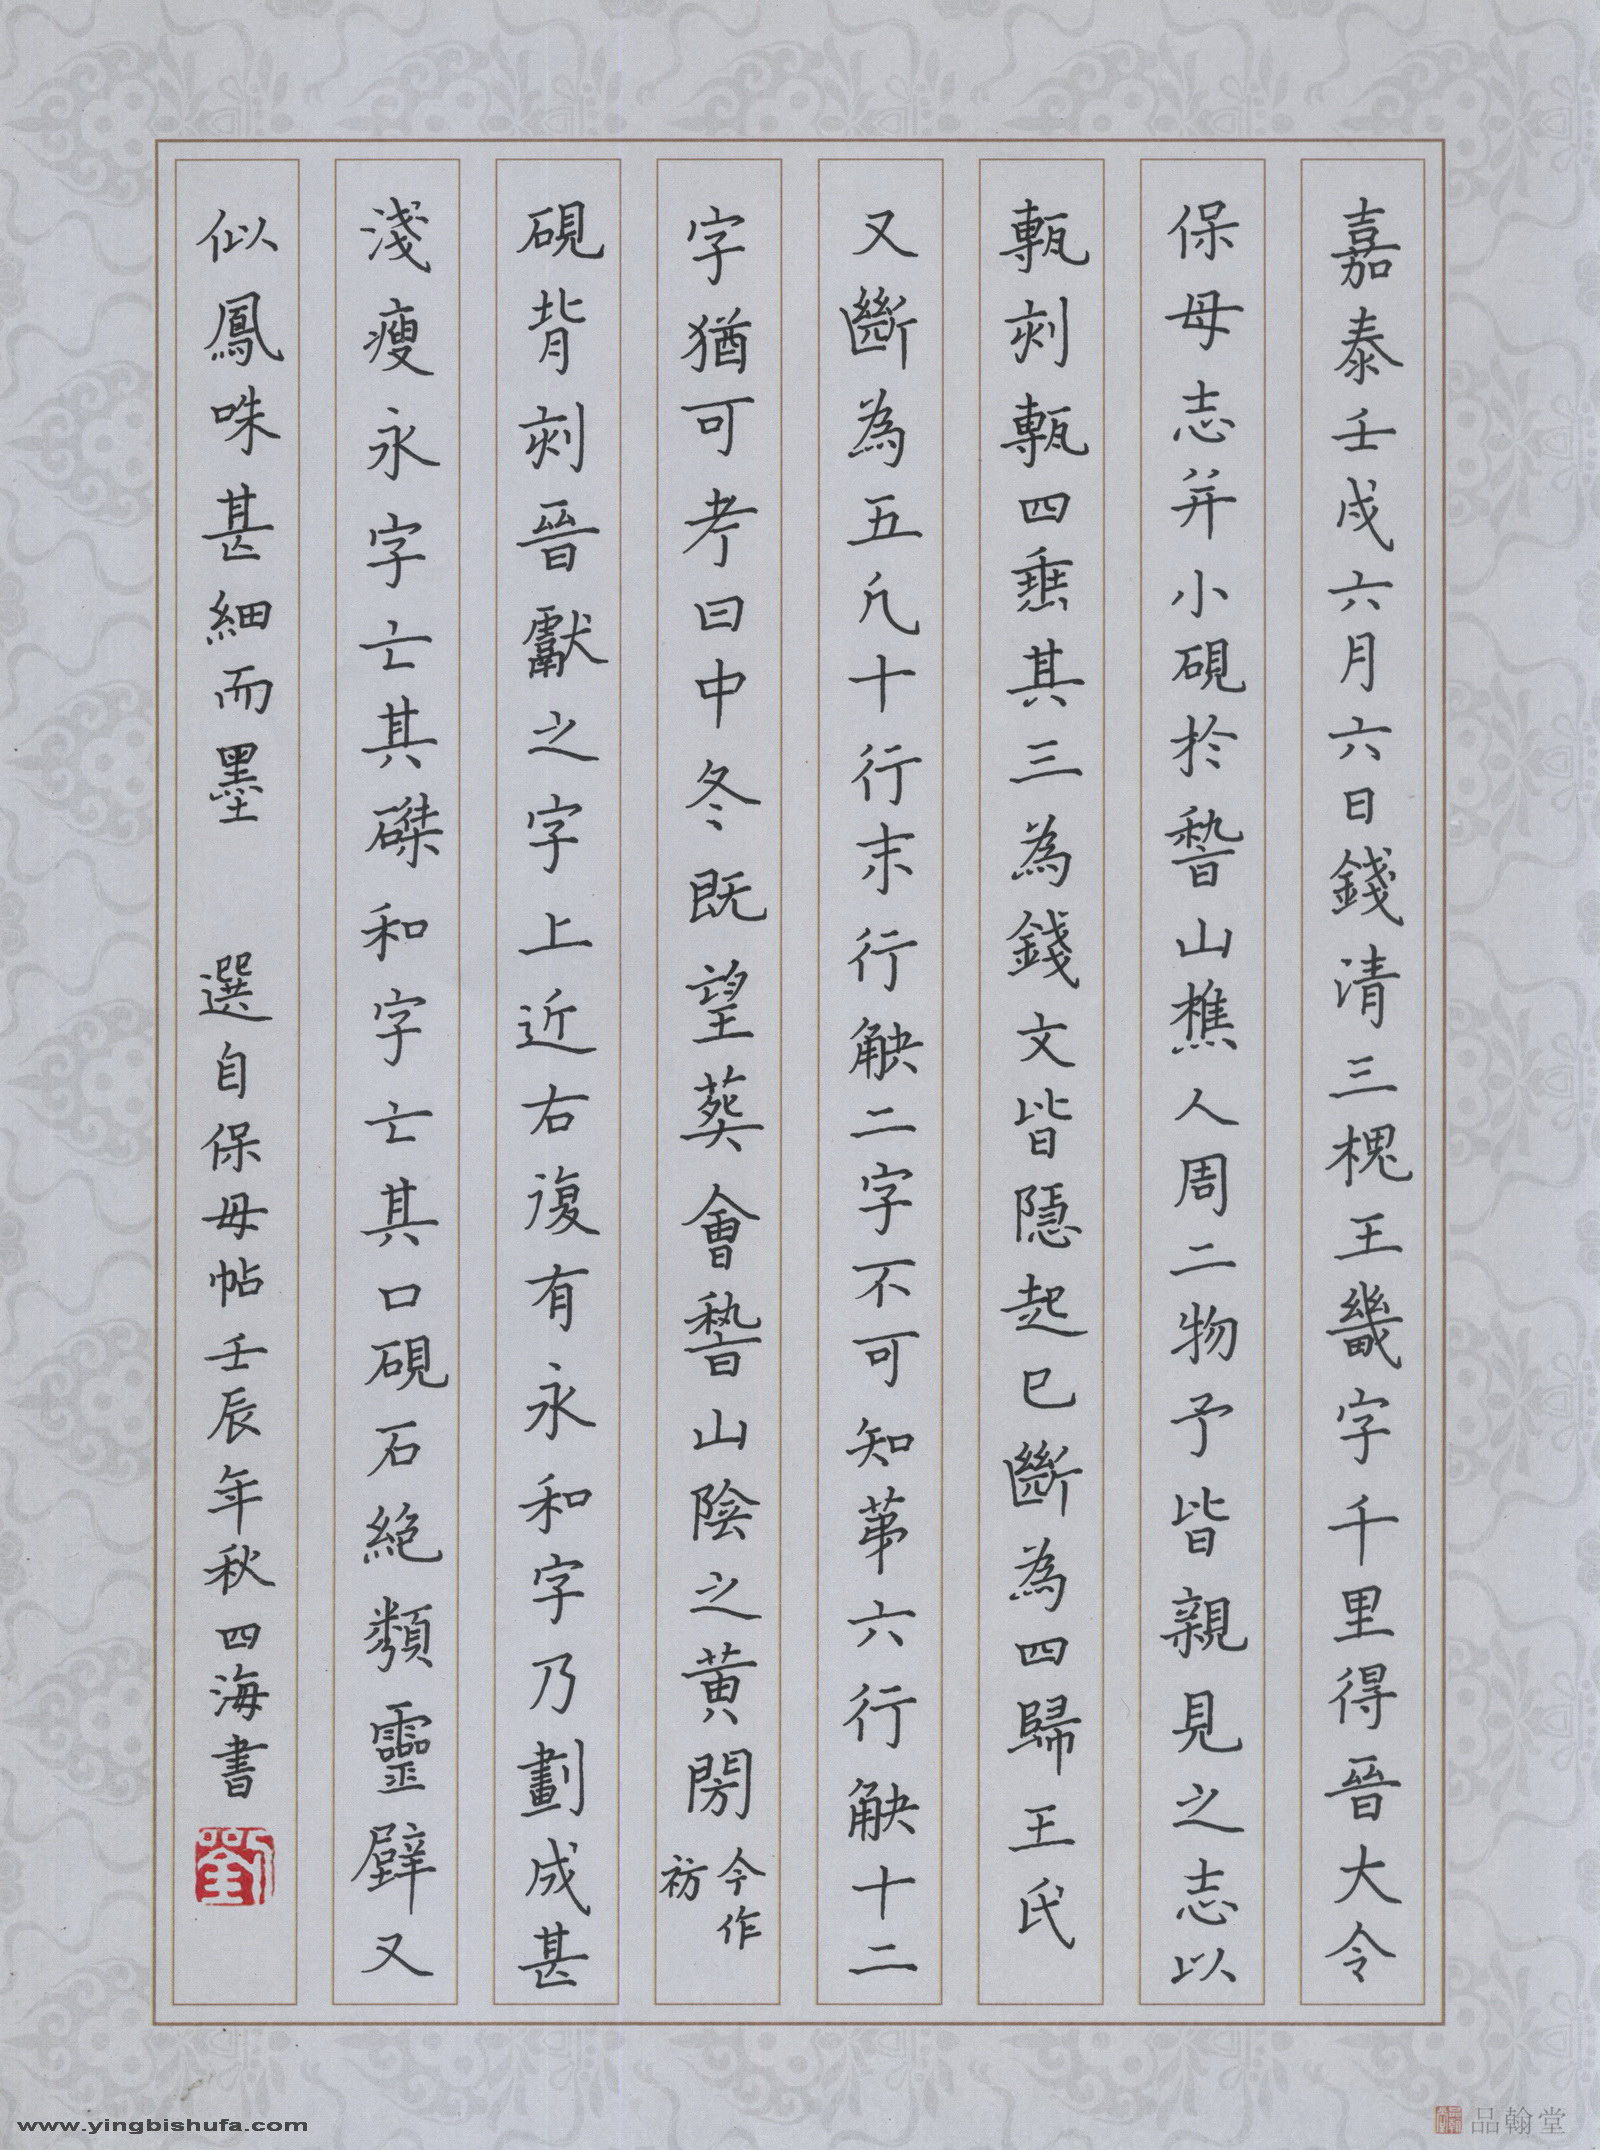 嘉泰壬戌六月六日錢清三槐王畿字千里得晉大令
保母志并小硯於稽山樵人周二物予皆親見之志以
甎刻甎四垂其三為錢文皆隱起已斷為四歸王氏
又斷為五凡十行末行缺二字不可知第六行缺十二
字猶可考曰中冬既望葬會稽山陰之黃閍今作祊
硯背刻晉獻之字上近右復有永和字乃劃成甚
淺瘦永字亡其磔和字亡其口硯石絕類靈壁又
似鳳咮甚細而墨 選自保母帖壬辰年秋四海書
劉
www.yingbishufa.com
品翰堂